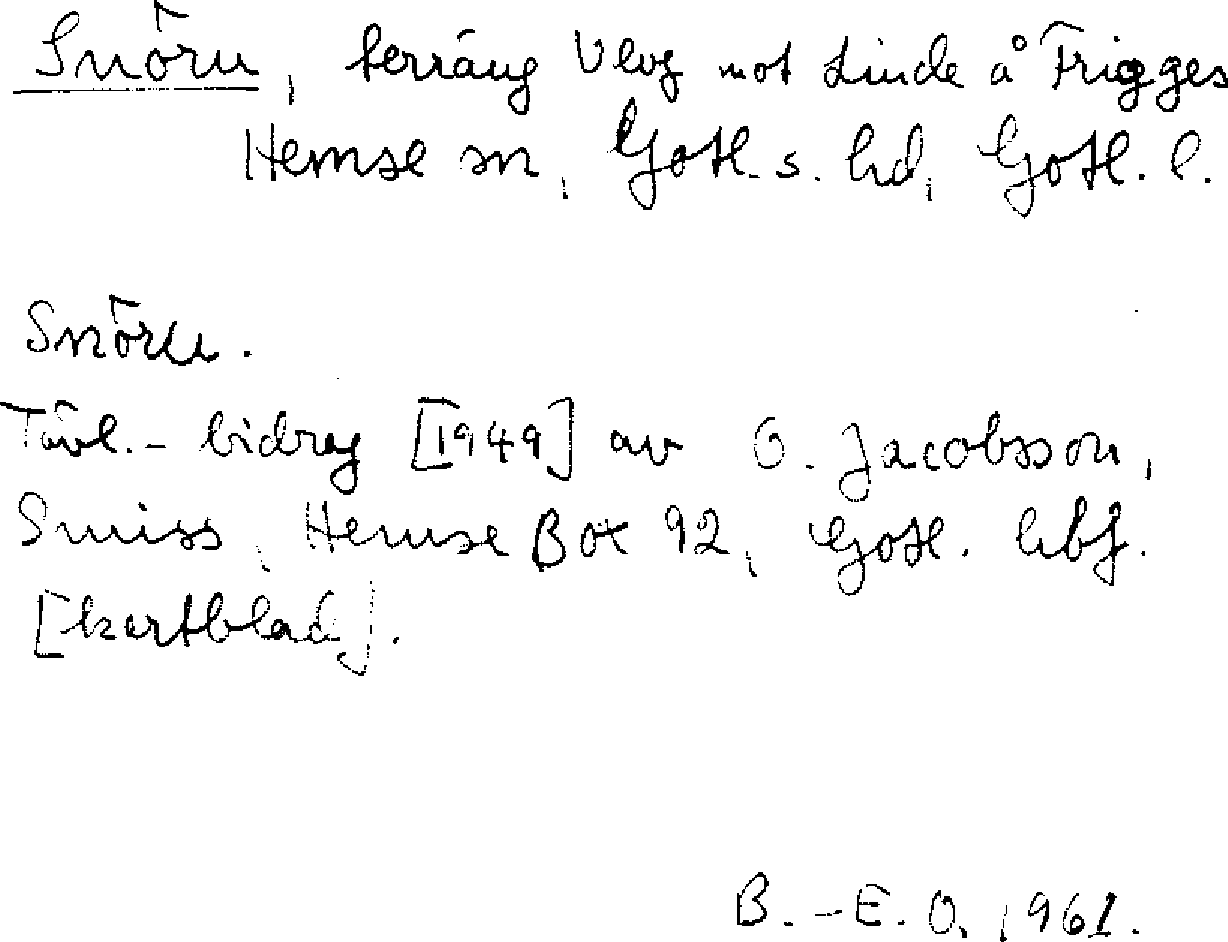 Snöru, terräng V log mot Linde å Frigges
Hemse sn, Gotl. s. hd, Gotl. l.
Snöru.
Tävl.-bidrag [1949] av O. Jacobsson,
Smiss, Hemse Box 92, Gotl. hbf.
[kartblad].
B.-E. O. 1961.